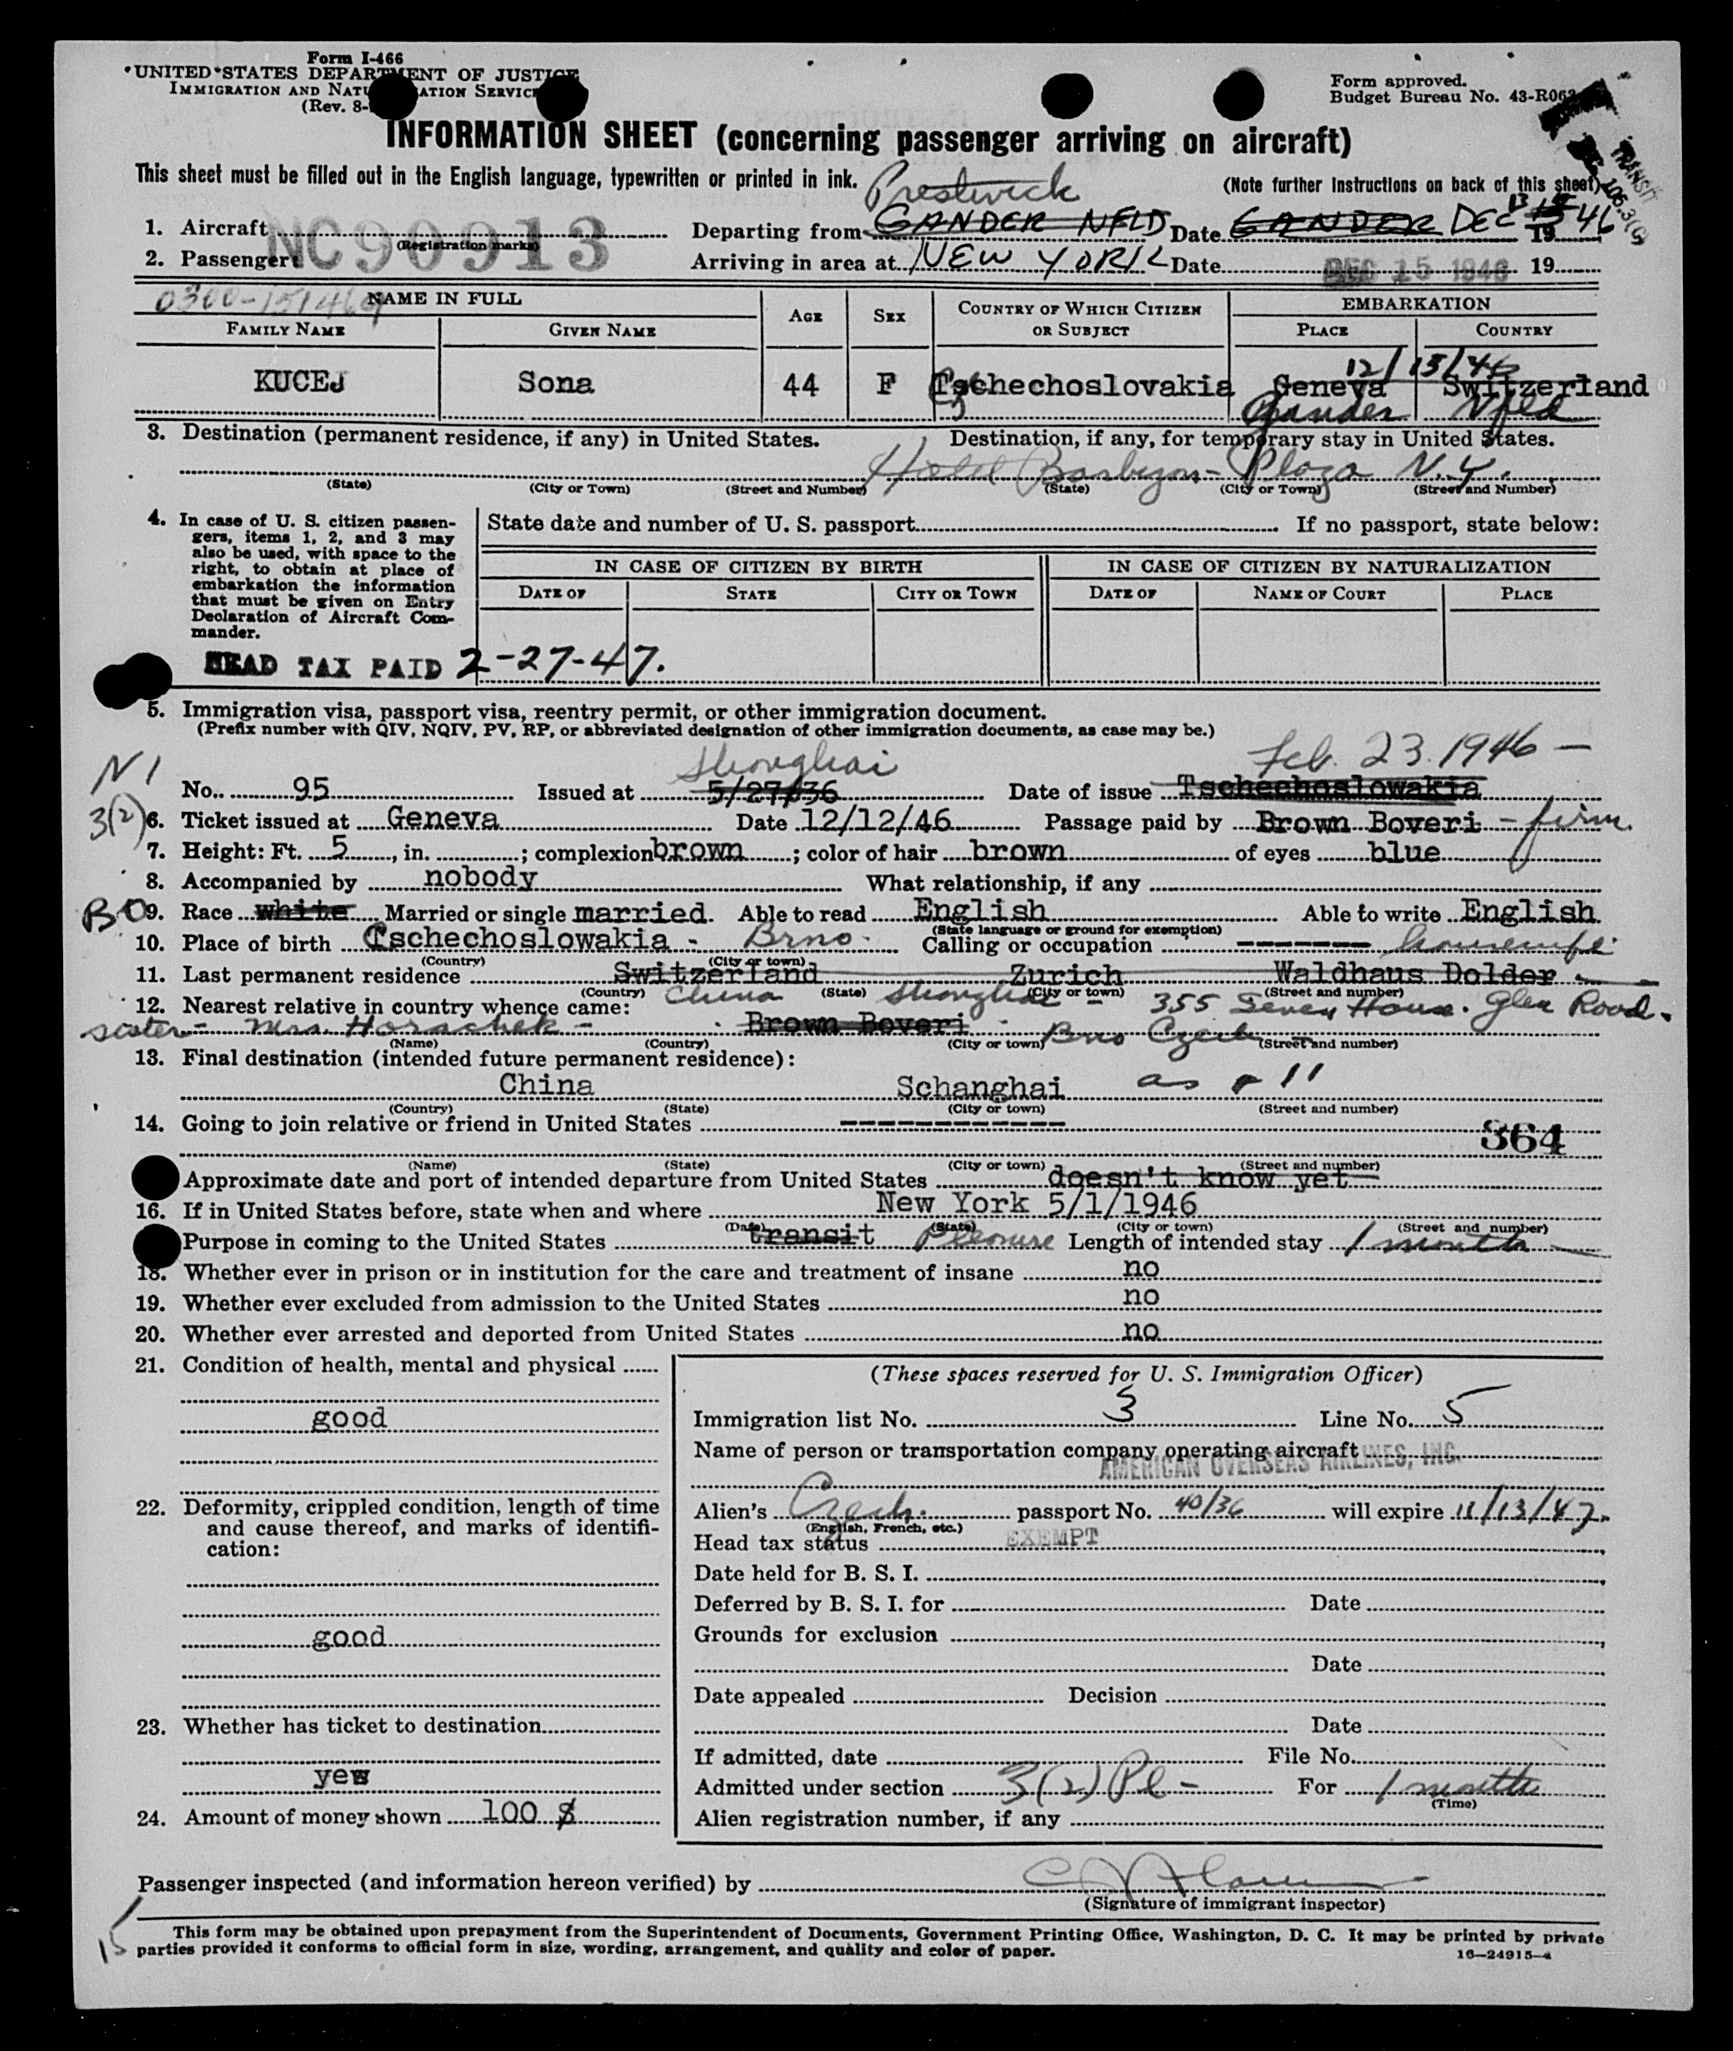 Form I-466
UNITED STATES DEPARTMENT OF JUSTICE
IMMIGRATION AND NATURALIZATION SERVICE
(Rev. 8-
Form approved.
Budget Bureau No. 43-R063
TRANSIT
INFORMATION SHEET (concerning passenger arriving on aircraft)
This sheet must be filled out in the English language, typewritten or printed in ink.
(Note further instructions on back of this sheet)
Prestwick
1. Aircraft NC90913 (Registration marks) Departing from GANDER NFLD Date GANDER DEC 13 1946
2. Passenger: Arriving in area at NEW YORK Date DEC 15 1946 19
0300-151469
NAME IN FULL AGE SEX COUNTRY OF WHICH CITIZEN OR SUBJECT EMBARKATION
FAMILY NAME GIVEN NAME PLACE COUNTRY
12/13/46
KUCEJ Sona 44 F Tschechoslovakia Geneva Switzerland
Gander Nfld
3. Destination (permanent residence, if any) in United States. Destination, if any, for temporary stay in United States.
Hotel Barbizon-Plaza N.Y.
(State) (City or Town) (Street and Number) (State) (City or Town) (Street and Number)
4. In case of U. S. citizen passengers, items 1, 2, and 3 may also be used, with space to the right, to obtain at place of embarkation the information that must be given on Entry Declaration of Aircraft Commander.
State date and number of U. S. passport If no passport, state below:
IN CASE OF CITIZEN BY BIRTH IN CASE OF CITIZEN BY NATURALIZATION
DATE OF STATE CITY OR TOWN DATE OF NAME OF COURT PLACE
HEAD TAX PAID 2-27-47.
5. Immigration visa, passport visa, reentry permit, or other immigration document.
(Prefix number with QIV, NQIV, PV, RP, or abbreviated designation of other immigration documents, as case may be.)
N 1 Shanghai Feb. 23. 1946 -
No. 95 Issued at 5/27/36 Date of issue Tschechoslowakia
3(2) 6. Ticket issued at Geneva Date 12/12/46 Passage paid by Brown Boveri - firm.
7. Height: Ft. 5, in. ; complexion brown; color of hair brown of eyes blue
8. Accompanied by nobody What relationship, if any
BO 9. Race white Married or single married. Able to read English Able to write English
(State language or ground for exemption)
10. Place of birth Tschechoslowakia - Brno. Calling or occupation ------- housewife
(Country) (City or town)
11. Last permanent residence Switzerland Zurich Waldhaus Dolder
(Country) China (State) Shanghai (City or town) 355 Seven House. Glen Road.
(Street and number)
12. Nearest relative in country whence came:
sister - Mrs. Horschek - Brown Boveri - Brno Czech
(Name) (Country) (City or town) (Street and number)
13. Final destination (intended future permanent residence):
China Schanghai as # 11
(Country) (State) (City or town) (Street and number)
14. Going to join relative or friend in United States ------------
364
(Name) (State) (City or town) (Street and number)
Approximate date and port of intended departure from United States doesn't know yet
16. If in United States before, state when and where New York 5/1/1946
(Date) (State) (City or town) (Street and number)
Purpose in coming to the United States transit Pleasure Length of intended stay 1 month
18. Whether ever in prison or in institution for the care and treatment of insane no
19. Whether ever excluded from admission to the United States no
20. Whether ever arrested and deported from United States no
21. Condition of health, mental and physical
good
22. Deformity, crippled condition, length of time and cause thereof, and marks of identification:
good
23. Whether has ticket to destination
yes
24. Amount of money shown 100 $
(These spaces reserved for U. S. Immigration Officer)
Immigration list No. 3 Line No. 5
Name of person or transportation company operating aircraft
AMERICAN OVERSEAS AIRLINES, INC.
Alien's Czech. passport No. 40/36 will expire 11/13/47.
(English, French, etc.)
Head tax status EXEMPT
Date held for B. S. I.
Deferred by B. S. I. for Date
Grounds for exclusion
Date
Date appealed Decision
Date
If admitted, date File No.
Admitted under section 3(2) Pl - For 1 month
(Time)
Alien registration number, if any
Passenger inspected (and information hereon verified) by
(Signature of immigrant inspector)
15
This form may be obtained upon prepayment from the Superintendent of Documents, Government Printing Office, Washington, D. C. It may be printed by private
parties provided it conforms to official form in size, wording, arrangement, and quality and color of paper.
16-24915-a